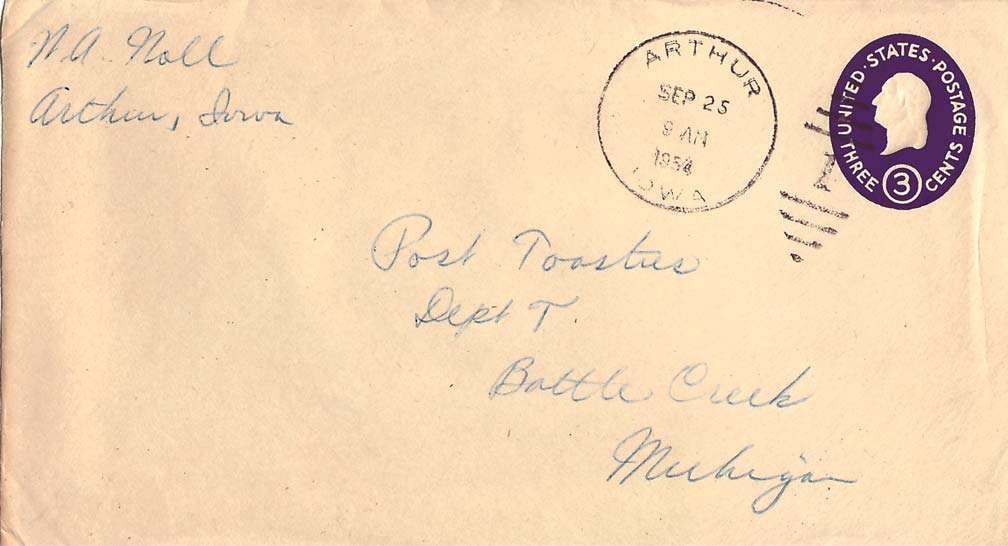 W.A. Noll
Arthur, Iowa
ARTHUR
SEP 25
9 AM
1954
IOWA
UNITED·STATES·POSTAGE
THREE 3 CENTS
Post Toasties
Dept T.
Battle Creek
Michigan